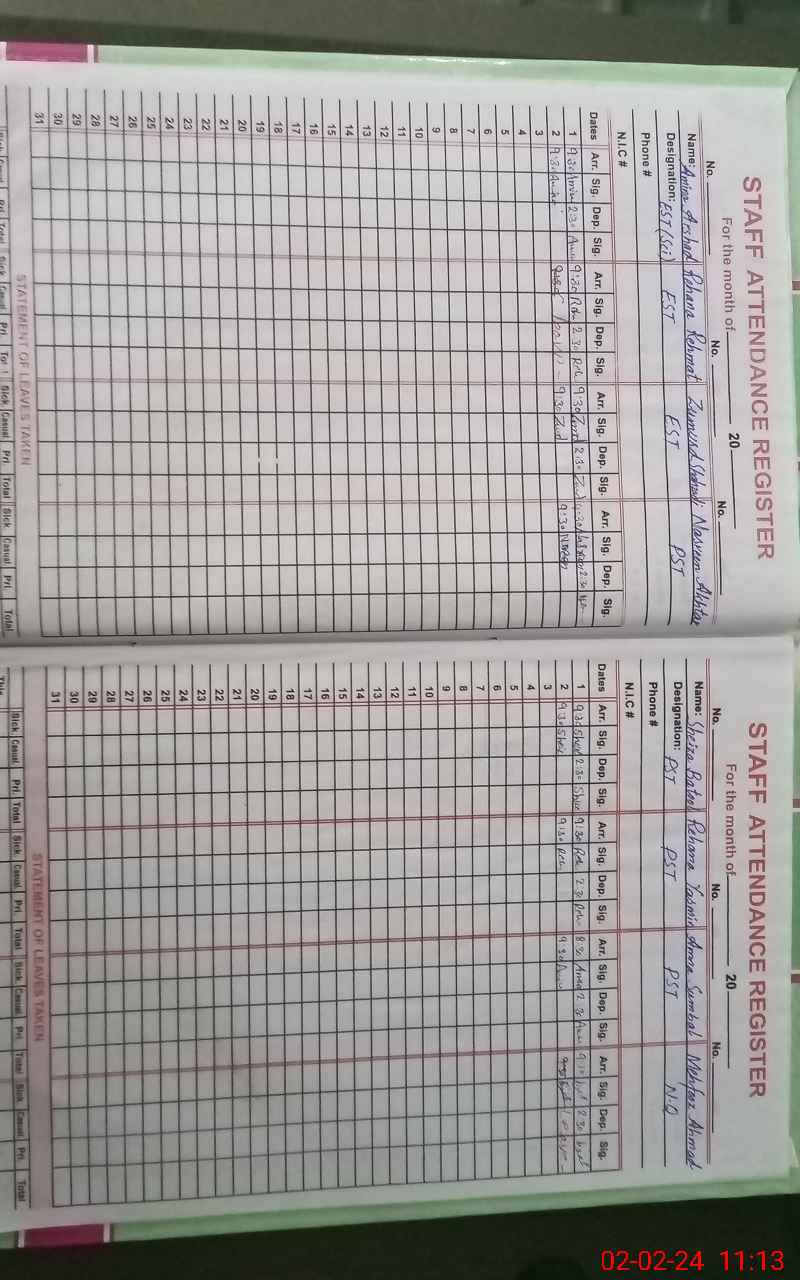 STAFF ATTENDANCE REGISTER
For the month of 20
No. No. No.
Name: Amina Arshad Rehana Rehmat Zumurd Shahzadi Nasreen Akhtar
Designation: EST(Sci) EST EST PST
Phone #
N.I.C #
Dates Arr. Sig. Dep. Sig. Arr. Sig. Dep. Sig. Arr. Sig. Dep. Sig. Arr. Sig. Dep. Sig.
1 9:30 2:30 9:30 2:30 9:30 2:30 9:30 2:30
2 9:30 9:30 9:30
3
4
5
6
7
8
9
10
11
12
13
14
15
16
17
18
19
20
21
22
23
24
25
26
27
28
29
30
31
STATEMENT OF LEAVES TAKEN
Sick Casual Pri. Total Sick Casual Pri. Tot Sick Casual Pri. Total Sick Casual Pri. Total
STAFF ATTENDANCE REGISTER
For the month of 20
No. No. No.
Name: Sheiza Batool Rehana Yasmin Amna Sumbal Mehfooz Ahmad
Designation: PST PST PST N-Q
Phone #
N.I.C #
Dates Arr. Sig. Dep. Sig. Arr. Sig. Dep. Sig. Arr. Sig. Dep. Sig. Arr. Sig. Dep. Sig.
1 9:30 2:30 9:30 2:30 8:30 2:30 2:30
2 9:30 9:30 9:30
3
4
5
6
7
8
9
10
11
12
13
14
15
16
17
18
19
20
21
22
23
24
25
26
27
28
29
30
31
STATEMENT OF LEAVES TAKEN
Sick Casual Pri. Total Sick Casual Pri. Total Sick Casual Pri. Total Sick Casual Pri. Total
This
02-02-24 11:13